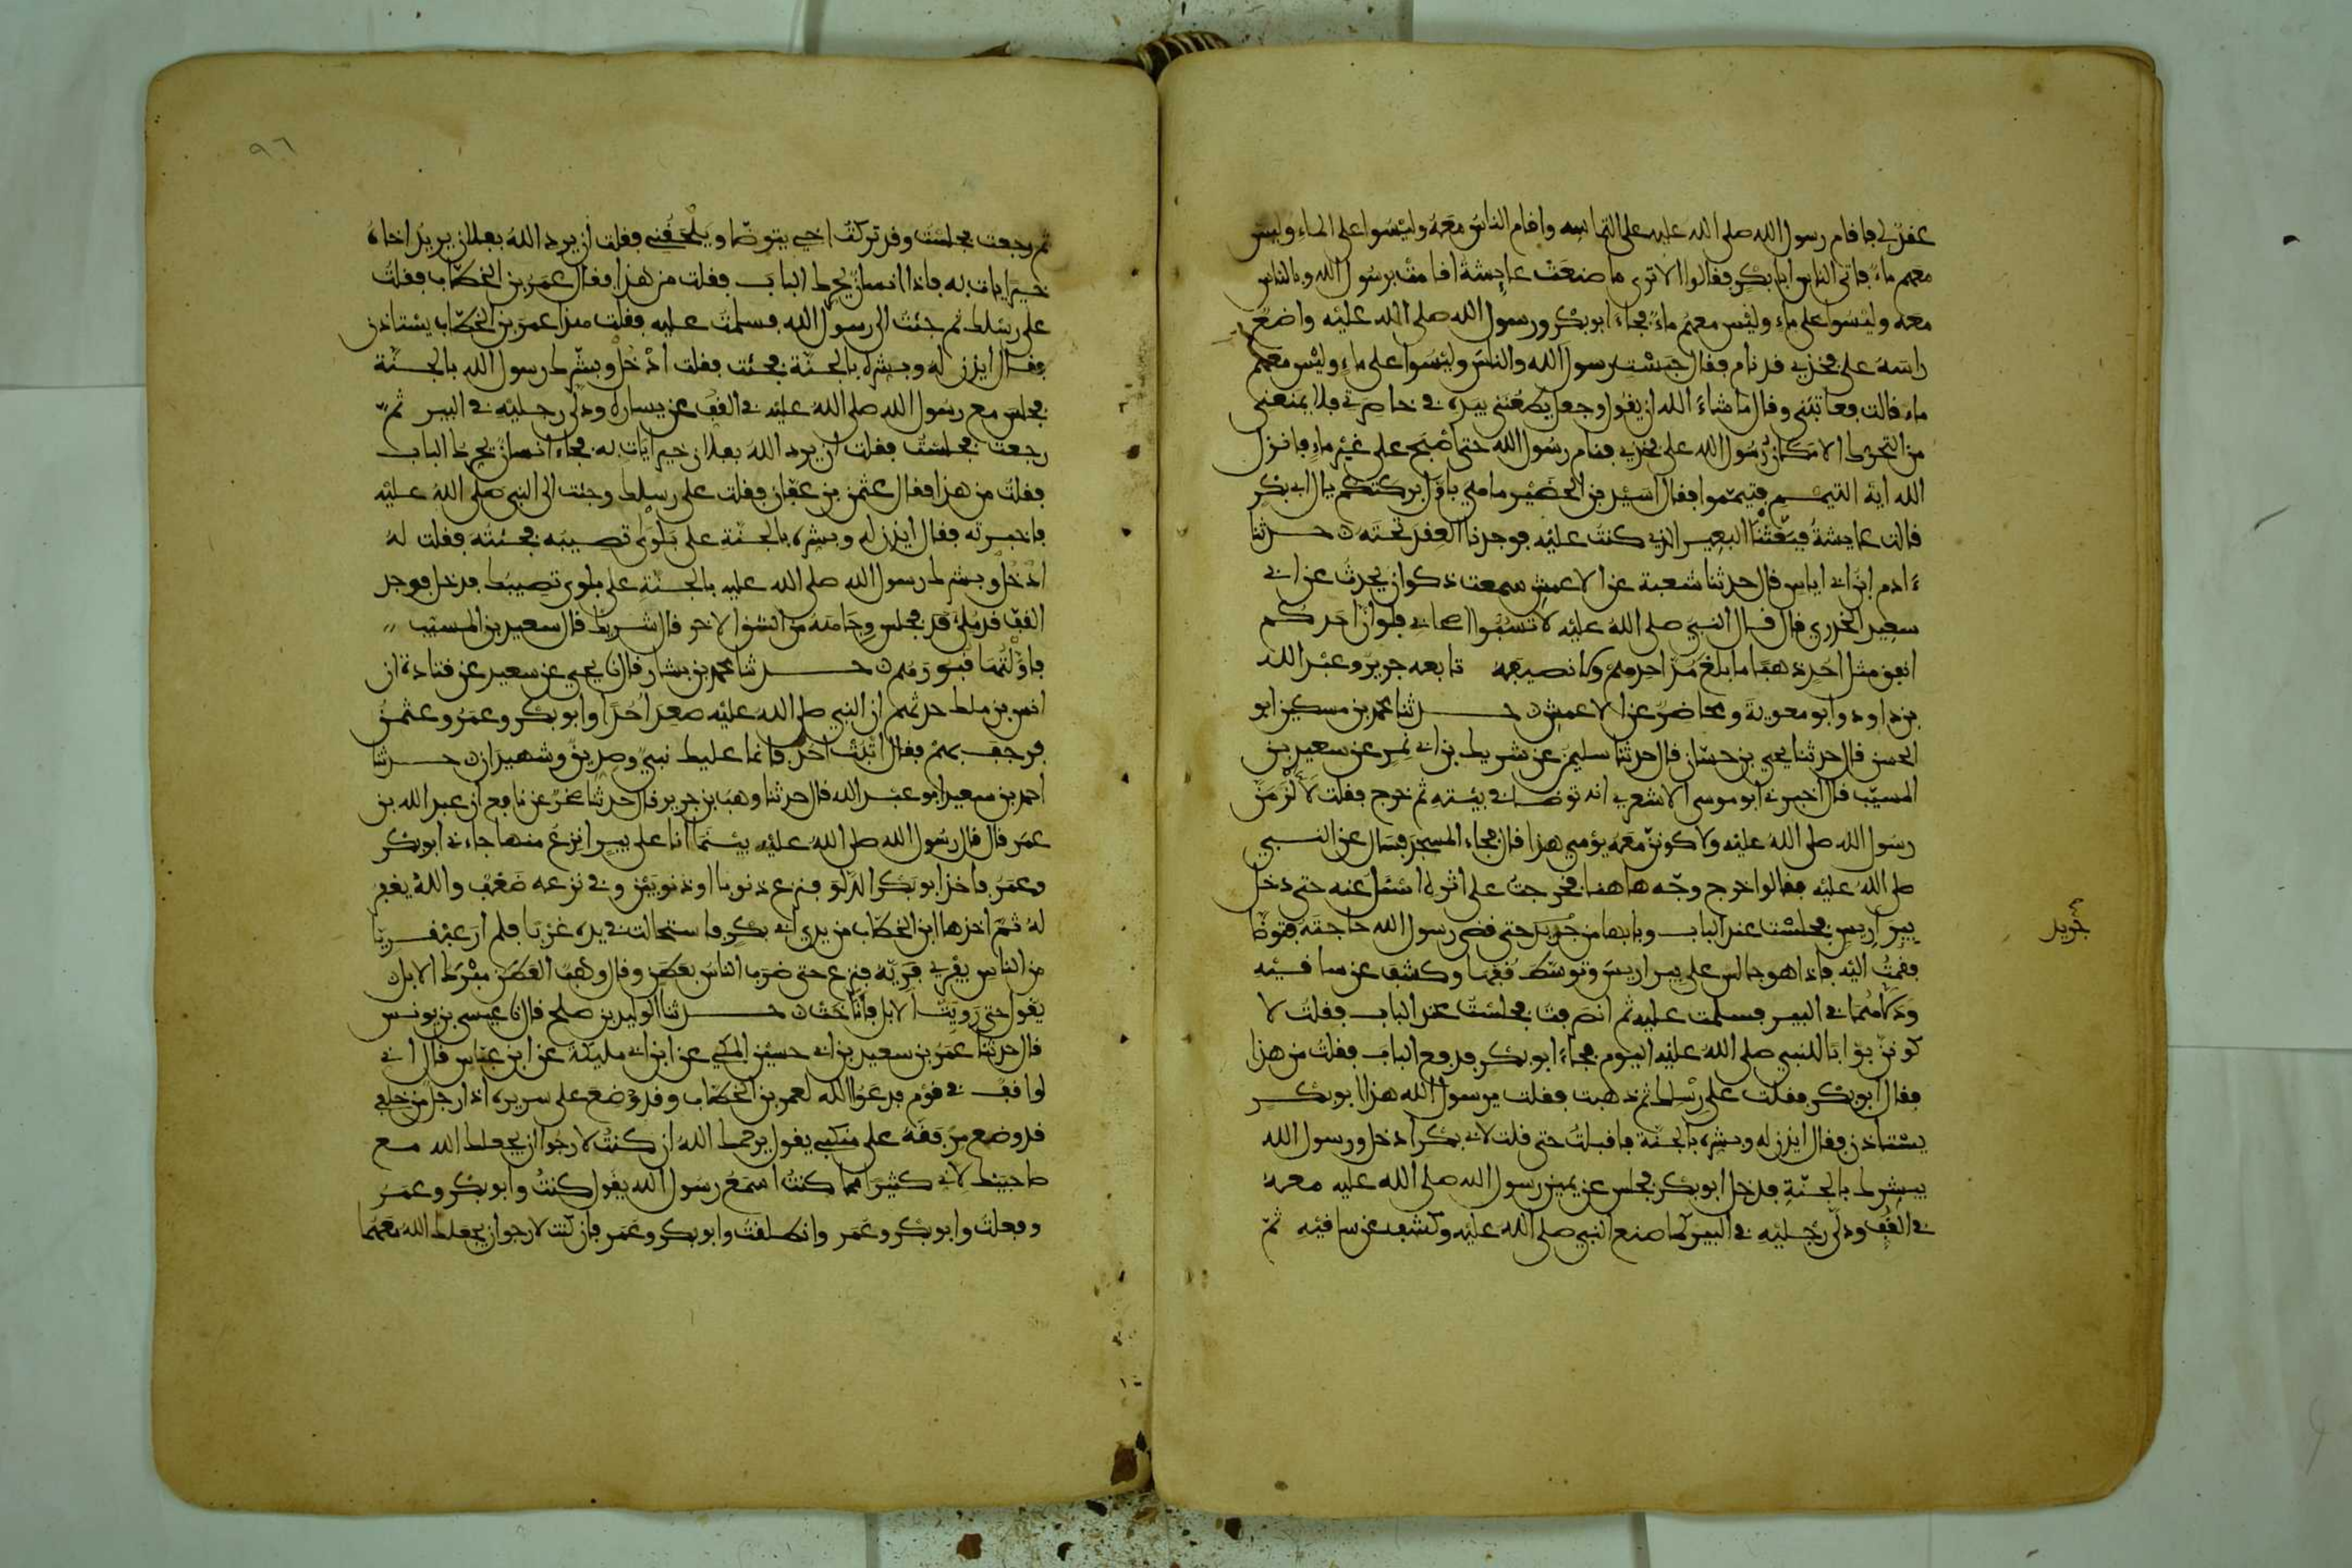 عقد لي فاقام رسول الله صلى الله عليه على التماسه واقام الناس معه وليسوا على الماء وليس
معهم ماء فاتى الناس ابا بكر فقالوا الا ترى ما صنعت عايشة اقامت برسول الله وبالناس
معه وليسوا على ماء وليس معهم ماء فجاء ابو بكر ورسول الله صلى الله عليه واضع
راسه على فخذي قد نام فقال حبست رسول الله والناس وليسوا على ماء وليس معهم
ماء قالت فعاتبني وقال ما شاء الله ان يقول وجعل يطعنني بيده في خاصرتي فلا يمنعني
من التحرك الا مكان رسول الله على فخذي فنام رسول الله حتى اصبح على غير ماء فانزل
الله اية التيمم فتيمموا فقال اسيد بن الحضير ما هي باول بركتكم يال ابي بكر
قالت عايشة فبعثنا البعير الذي كنت عليه فوجدنا العقد تحته حدثنا
ءادم ابن ابي اياس قال حدثنا شعبة عن الاعمش سمعت ذكوان يحدث عن ابي
سعيد الخدري قال قال النبي صلى الله عليه لا تسبوا اصحابي فلو ان احدكم
انفق مثل احد ذهبا ما بلغ مد احدهم ولا نصيفه تابعه جرير وعبد الله
بن داود وابو معوية ومحاضر عن الاعمش حدثنا محمد بن مسكين ابو
الحسن قال حدثنا يحيى بن حسان قال حدثنا سليمن عن شريك بن ابي نمر عن سعيد بن
المسيب قال اخبرني ابو موسى الاشعري انه توضا في بيته ثم خرج فقلت لالزمن
رسول الله صلى الله عليه ولاكونن معه يومي هذا قال فجاء المسجد فسال عن النبي
صلى الله عليه فقالوا خرج ووجه هاهنا فخرجت على اثره اسئل عنه حتى دخل
بير اريس فجلست عند الباب وبابها من جريد حتى قضى رسول الله حاجته فتوضا
فقمت اليه فاذا هو جالس على بير اريس وتوسط قفها وكشف عن ساقيه
ودلاهما في البير فسلمت عليه ثم انصرفت فجلست عند الباب فقلت لا
كونن بوابا للنبي صلى الله عليه اليوم فجاء ابو بكر فدفع الباب فقلت من هذا
فقال ابو بكر فقلت على رسلك ثم ذهبت فقلت يرسول الله هذا ابو بكر
يستاذن فقال ايذن له وبشره بالجنة فاقبلت حتى قلت لابي بكر ادخل ورسول الله
يبشرك بالجنة فدخل ابو بكر فجلس عن يمين رسول الله صلى الله عليه معه
في القف ودلى رجليه في البير كما صنع النبي صلى الله عليه وكشف عن ساقيه ثم
جريد
٩٦
ثم رجعت فجلست وقد تركت اخي يتوضا ويلحقني فقلت ان يرد الله بفلان يريد اخاه
خيرا يات به فاذا انسان يحرك الباب فقلت من هذا فقال عمر بن الخطاب فقلت
على رسلك ثم جئت الى رسول الله فسلمت عليه فقلت هذا عمر بن الخطاب يستاذن
فقال ايذن له وبشره بالجنة فجئت فقلت ادخل وبشرك رسول الله بالجنة
فجلس مع رسول الله صلى الله عليه في القف عن يساره ودلى رجليه في البير ثم
رجعت فجلست فقلت ان يرد الله بفلان خيرا يات به فجاء انسان يحرك الباب
فقلت من هذا فقال عثمن بن عفان فقلت على رسلك وجئت الى النبي صلى الله عليه
فاخبرته فقال ايذن له وبشره بالجنة على بلوى تصيبه فجئته فقلت له
ادخل وبشرك رسول الله صلى الله عليه بالجنة على بلوى تصيبك فدخل فوجد
القف قد ملئ فجلس وجاهه من الشق الاخر قال شريك قال سعيد بن المسيب
فاولتها قبورهم حدثنا محمد بن بشار قال نا يحيى عن سعيد عن قتادة ان
انس بن ملك حدثهم ان النبي صلى الله عليه صعد احدا وابو بكر وعمر وعثمن
فرجف بهم فقال اثبت احد فانما عليك نبي وصديق وشهيدان حدثنا
احمد بن سعيد ابو عبد الله قال حدثنا وهب بن جرير قال حدثنا صخر عن نافع ان عبد الله بن
عمر قال قال رسول الله صلى الله عليه بينما انا على بير انزع منها جاءني ابو بكر
وعمر فاخذ ابو بكر الدلو فنزع ذنوبا او ذنوبين وفي نزعه ضعف والله يغفر
له ثم اخذها ابن الخطاب من يدي ابي بكر فاستحالت في يده غربا فلم ار عبقريا
من الناس يفري فريه فنزع حتى ضرب الناس بعطن وقال وهب العطن مبرك الابل
يقول حتى رويت الابل فاناخت حدثنا الوليد بن صلح قال نا عيسى بن يونس
قال حدثنا عمر بن سعيد بن ابي حسين المكي عن ابن ابي مليكة عن ابن عباس قال اني
لواقف في قوم فدعوا الله لعمر بن الخطاب وقد وضع على سريره اذا رجل من خلفي
قد وضع مرفقه على منكبي يقول يرحمك الله ان كنت لارجوا ان يجعلك الله مع
صاحبيك لاني كثيرا مما كنت اسمع رسول الله يقول كنت وابو بكر وعمر
وفعلت وابو بكر وعمر وانطلقت وابو بكر وعمر فان كنت لارجوا ان يجعلك الله معهما